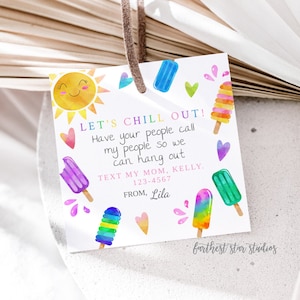 LET'S CHILL OUT!
Have your people call
my people so we
can hang out
TEXT MY MOM, KELLY
123-4567
FROM, Lila
farthest star studios